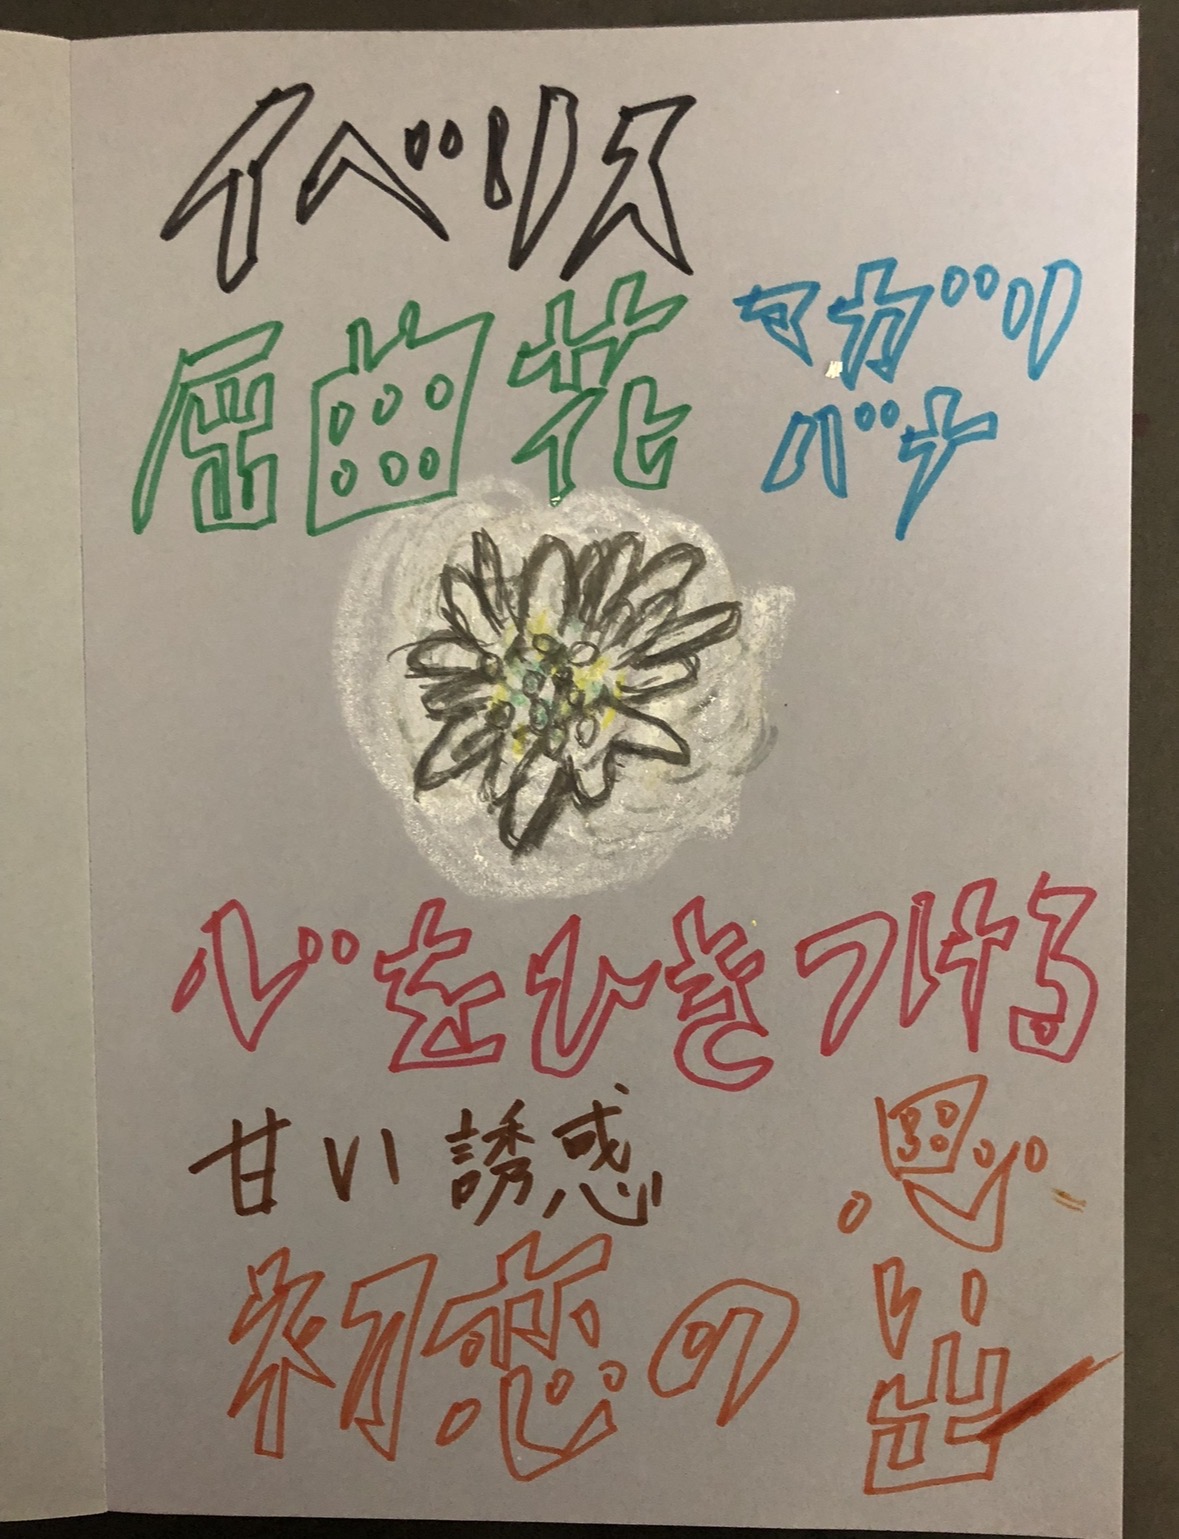 イベリス
屈曲花 マガリバナ
心をひきつける
甘い誘惑
初恋の思い出